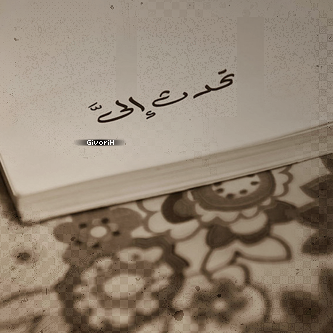 تحدث إليَّ
GivoriH